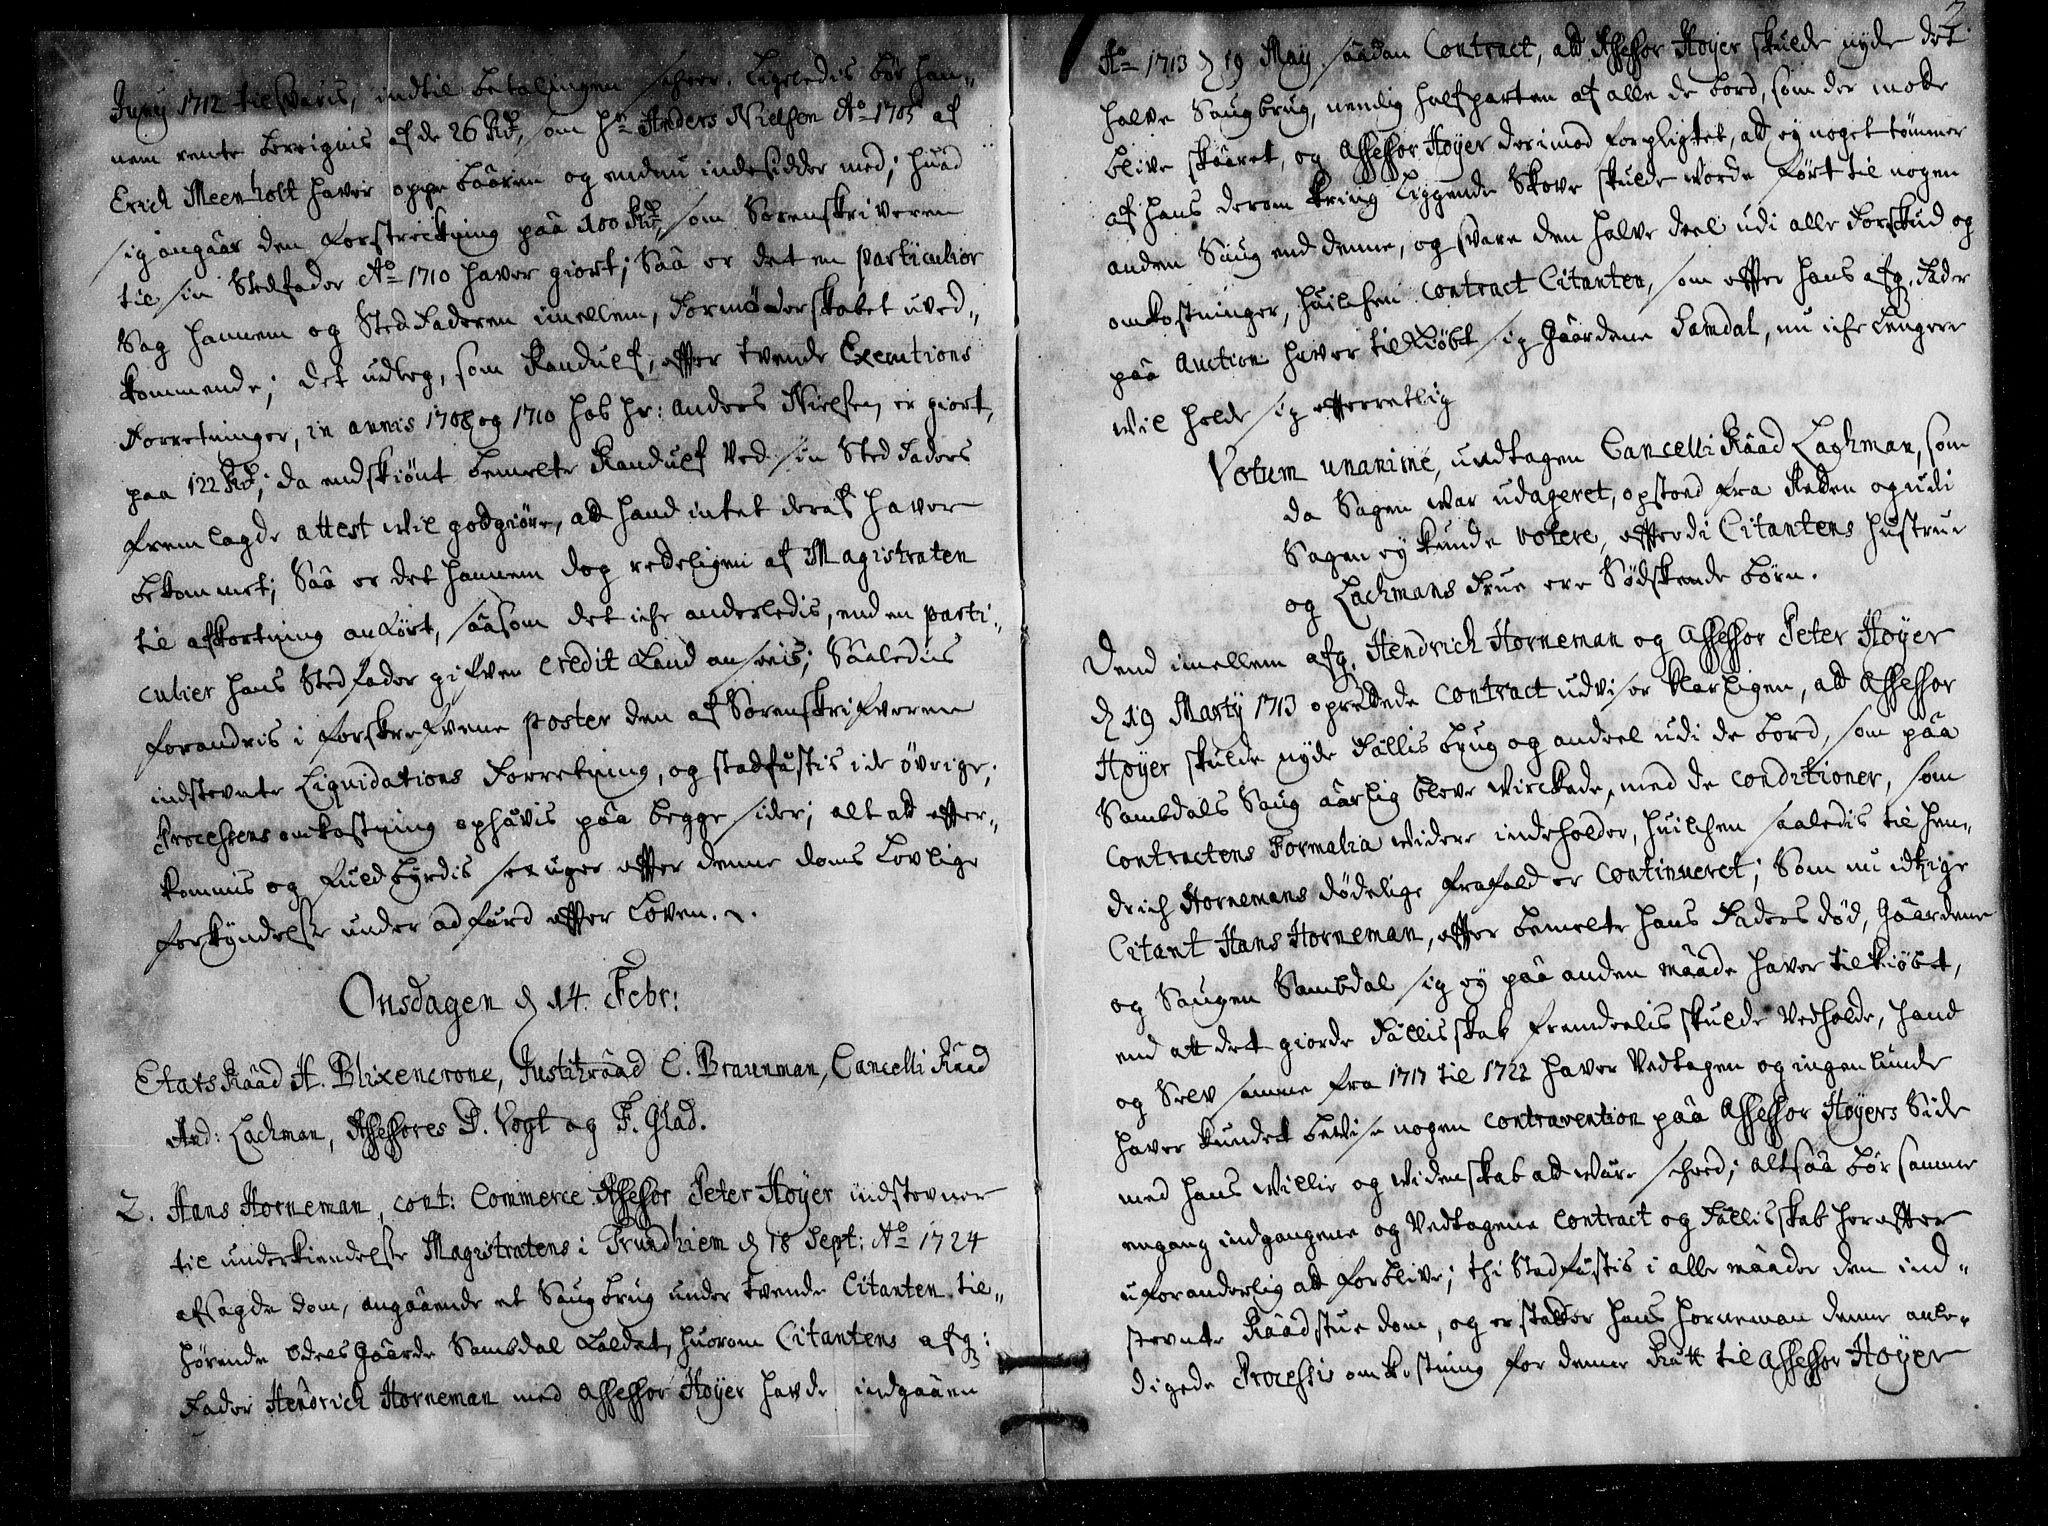 Juny 1712 tilsvaris, indtil betalingen skeer. Ligeledis bør han¬
nem rente berignis af de 26 Rdr, som Hr Anders Nielsen Ao 1705 af
Erich Meenholt haver oppebaaren og endnu indesidder med; huad
sig angaar den forstreckning paa 100 Rdr, som Sorenskriveren
til sin Stedfader Ao 1710 haver giort; Saa er det en particulier
Sag hannem og Sted Faderen imellem, Formynderskabet uved¬
kommende; det udleg, som Randulf, effter tvende Executions
Forretninger, in annis 1708 og 1710 hos Hr: Anders Nielsen, er giort,
paa 122 Rdr; da endskiønt bemelte Randulf ved sin Sted Faders
fremlagde attest vil godgiøre, att hand intet deraf haver
bekommet; Saa er det hannem dog redeligen af Magistraten
til afkortning anført, saasom det iche anderledis, end en parti¬
culier hans Stedfader gifven Credit kand ansees; Saaledis
forandris i forskrefvene poster den af Sorenskrifveren
indstevnte Liquidations Forretning, og stadfæstis i de øvrige;
Processens omkostning ophævis paa begge sider; alt att effter¬
kommis og fuldbyrdis sex uger effter denne doms lovlige
forkyndelse under adfærd effter Loven.
Onsdagen d 14. Febr:
Etats Raad H. Blixencrone, Justitzraad C. Braunman, Cancelli Raad
And: Lachman, Assessores P. Vogt og F. Glad.
2. Hans Horneman, cont: Commerce Assessor Peter Hoyer indstevner
til underkiendelse Magistratens i Trundhiem d 18 Sept: Ao 1724
afsagde dom, angaaende et Saugbrug under tvende Citanten til¬
hørende Odels Gaarde Sambdal kaldet, huorom Citantens afg:
Fader Hendrich Horneman med Assessor Hoyer havde indgaaen
2
Ao 1713 d 19 May saadan Contract, att Assessor Hoyer skulde nyde det
halve Saugbrug, nemlig halfparten af alle de bord, som der motte
blive skaaret, og Assessor Hoyer derimod forpligtet, att ey noget tømmer
af hans derom kring liggende Skove skulde worde ført til nogen
anden Saug end denne, og svare den halve deel udi alle Forskud og
omkostninger, huilchen Contract Citanten, som effter hans afg. Fader
paa Auction haver tilkiøbt sig Gaardene Samdal, nu iche lengere
wil holde sig effterretlig
Votum unanime, undtagen Cancelli Raad Lachman, som
da Sagen war udageret, opstoed fra Retten og udi
Sagen ey kunde votere, efterdi Citantens Hustrue
og Lachmans Frue ere Sødskende børn.
Dend imellem afg. Hendrich Horneman og Assessor Peter Hoyer
d 19 Marty 1713 oprettede Contract udviser klarligen, att Assessor
Hoyer skulde nyde Fællis brug og andeel udi de bord, som paa
Sambdals Saug aarlig bleve wirckede, med de Conditioner, som
Contractens Formalia widere indeholder, huilchen saaledis til Hen¬
drich Hornemans dødelige frafald er Continueret; Som nu idtzige
Citant Hans Horneman, effter bemelte hans Faders død, Gaardene
og Saugen Sambdal sig ey paa anden maade haver tilkiøbt,
end att det giorde Fællisskab fremdeelis skulde vedholde, hand
og Selv samme fra 1717 til 1722 haver vedtagen og ingenlunde
haver kundet bevise nogen Contravention paa Assessor Hoyers Side
med hans Willie og Widenskab att wære skeed; altsaa bør samme
engang indgangene og vedtagene Contract og Fællisskab hereffter
uforanderlig att forblive; thi stadfæstis i alle maader den ind¬
stevnte Raadstue dom, og erstatter Hans Horneman denne anle¬
digede Processis omkostning for denne Rett til Assessor Hoyer